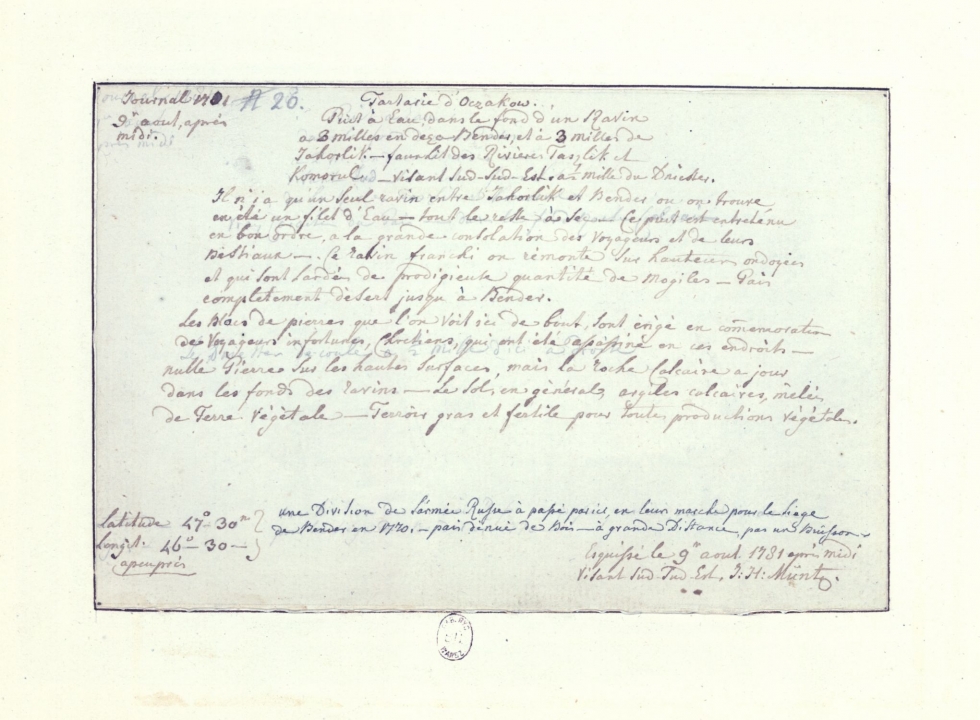 Journal 1781 # 26.
9.r aout, après
midi.
Tartarie d'Oczakow.
Puit à Eau, dans le fond d'un Ravin
a 3 milles en deça Bender, et à 3 milles de
Jahorlik — faux lit des Rivieres Taszlik et
— visant Sud-Sud-Est — a mille du Dniester.
Il n'i a qu'un seul ravin entre Jahorlik et Bender ou on trouve
en été un filet d'Eau — tout le reste à sec. Ce puit est entretenu
en bon ordre, a la grande consolation des Voyageurs et de leurs
Bestiaux —. Ce ravin franchi on remonte sur hauteurs ondoyées
et qui sont lardés de prodigieuse quantité de Mogiles — Païs
completement désert jusqu'à Bender.
Les Blocs de pierres que l'on voit ici de bout, sont érigé en comemoration
de Voyageurs infortunés, Chretiens, qui ont été assassiné en ces endroits —
nulle Pierre sur les hautes surfaces, mais la Roche Calcaire a jour
dans les fonds des ravins — Le Sol, en général, argiles calcaires, mêlés
de Terre végétale — Terroir gras et fertile pour toutes productions végétales.
une Division de l'armée Russe à passé par ici, en leur marche pour le siege
de Bender en 1770. — païs dénué de Bois — à grande Distance, pas un Buisson.
Latitude 47° 30 m
Longit: 46° — 30 —
apeuprès
Esquissé le 9r aout 1781 après midi
Visant Sud Sud Est. J: H: Müntz.